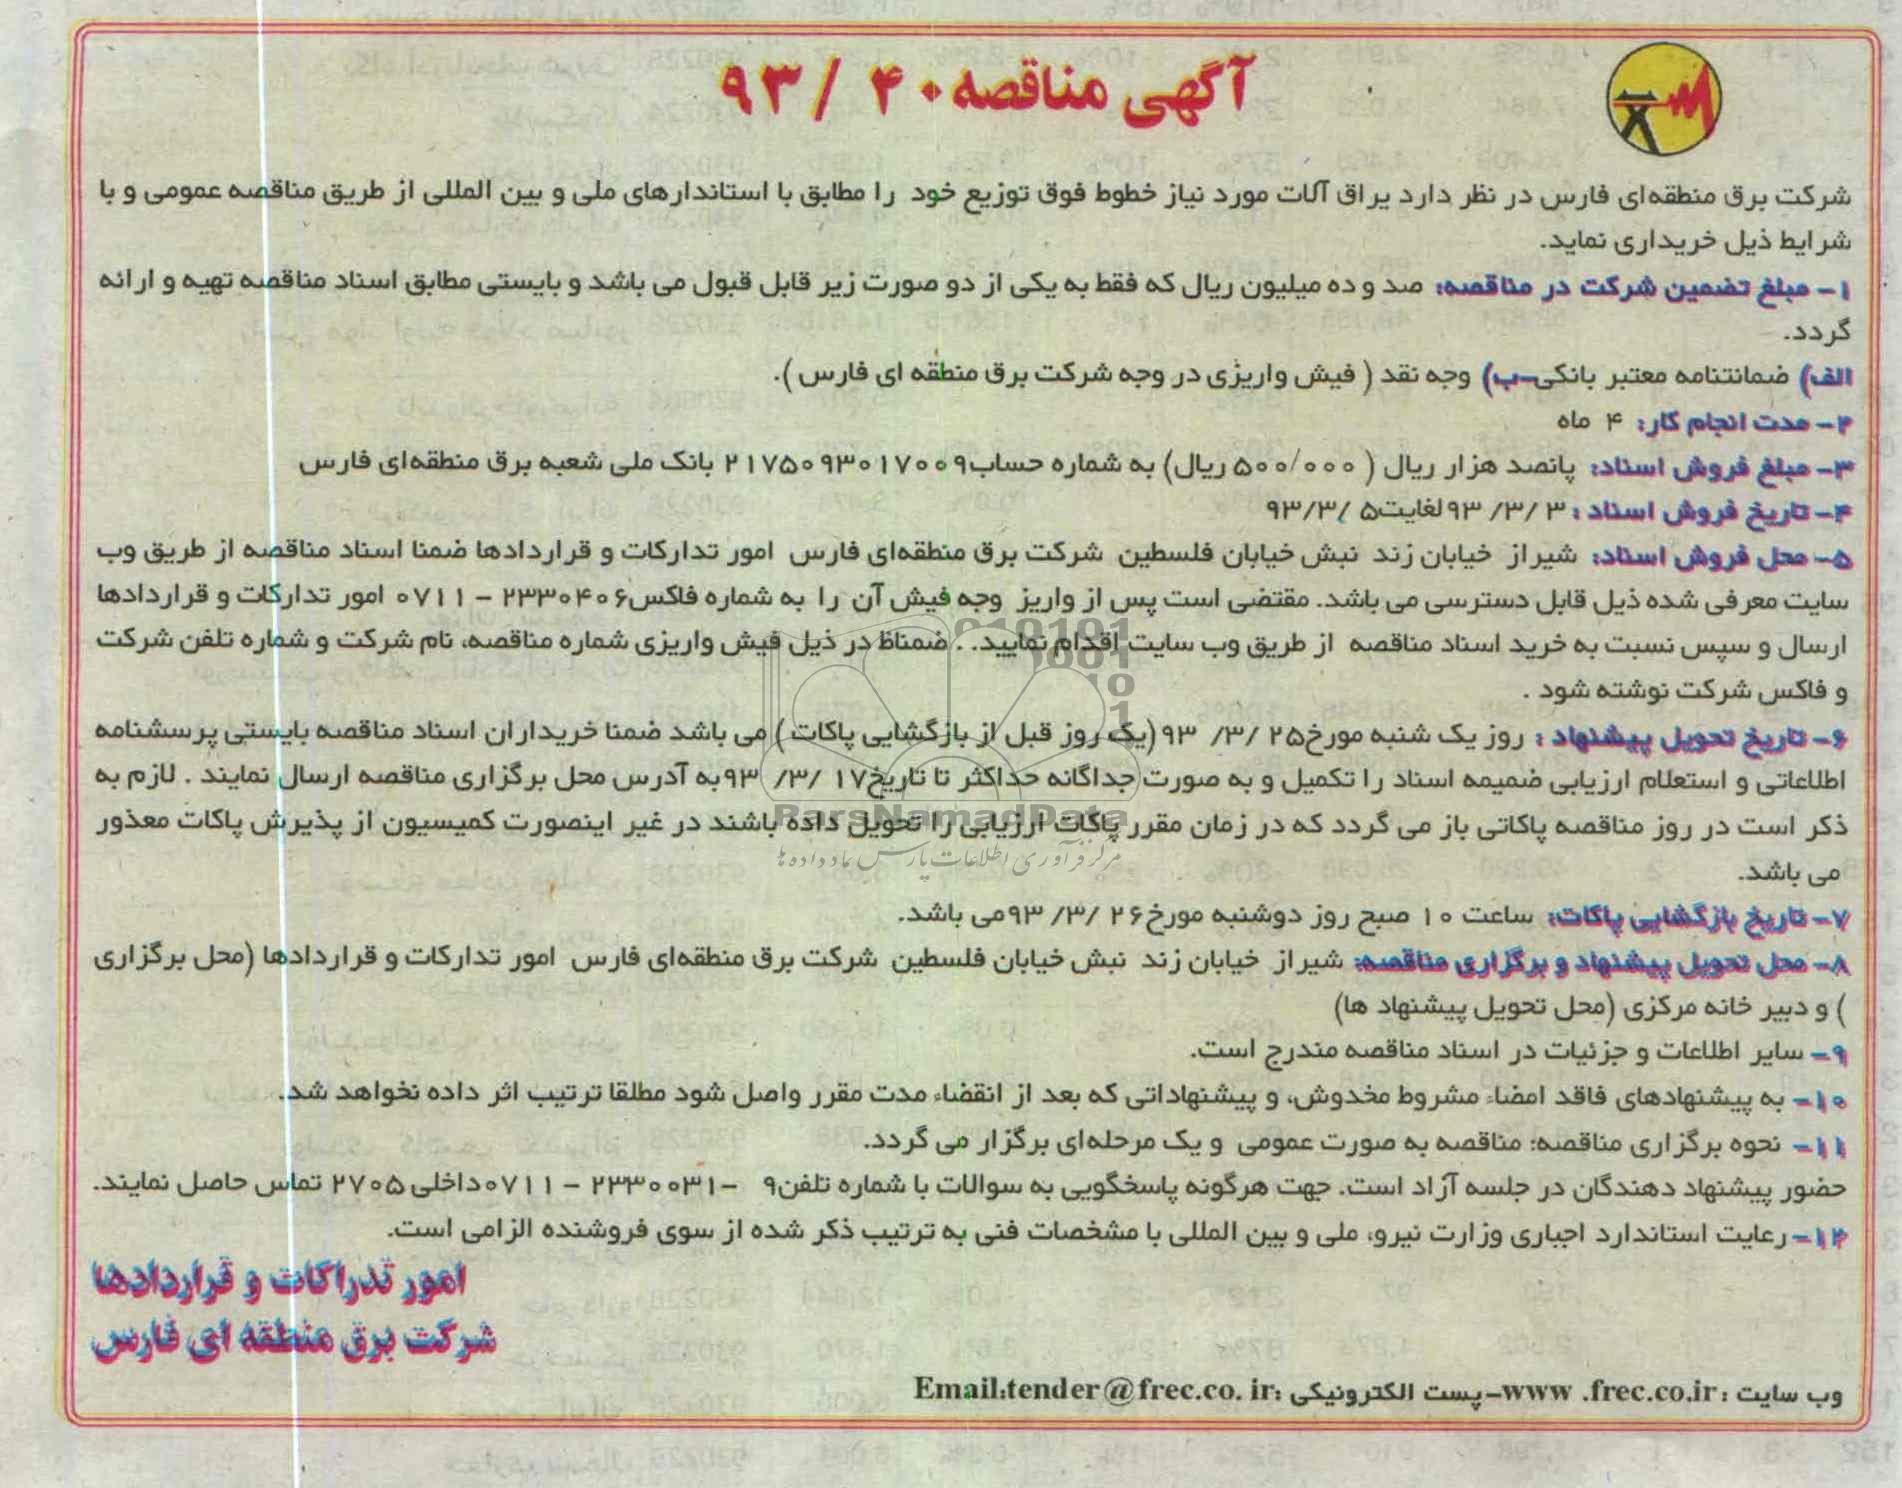 آگهی مناقصه ۴۰ / ۹۳
شرکت برق منطقه‌ای فارس در نظر دارد یراق آلات مورد نیاز خطوط فوق توزیع خود را مطابق با استاندارهای ملی و بین المللی از طریق مناقصه عمومی و با
شرایط ذیل خریداری نماید.
۱- مبلغ تضمین شرکت در مناقصه: صد و ده میلیون ریال که فقط به یکی از دو صورت زیر قابل قبول می باشد و بایستی مطابق اسناد مناقصه تهیه و ارائه
گردد.
الف) ضمانتنامه معتبر بانکی-ب) وجه نقد ( فیش واریزی در وجه شرکت برق منطقه ای فارس ).
۲- مدت انجام کار: ۴ ماه
۳- مبلغ فروش اسناد: پانصد هزار ریال ( ۵۰۰/۰۰۰ ریال) به شماره حساب ۲۱۷۵۰۹۳۰۱۷۰۰۹ بانک ملی شعبه برق منطقه‌ای فارس
۴- تاریخ فروش اسناد : ۳ /۳/ ۹۳ لغایت ۵ /۹۳/۳
۵- محل فروش اسناد: شیراز خیابان زند نبش خیابان فلسطین شرکت برق منطقه‌ای فارس امور تدارکات و قراردادها ضمنا اسناد مناقصه از طریق وب
سایت معرفی شده ذیل قابل دسترسی می باشد. مقتضی است پس از واریز وجه فیش آن را به شماره فاکس ۲۳۳۰۴۰۶ - ۰۷۱۱ امور تدارکات و قراردادها
ارسال و سپس نسبت به خرید اسناد مناقصه از طریق وب سایت اقدام نمایید. . ضمناظ در ذیل فیش واریزی شماره مناقصه، نام شرکت و شماره تلفن شرکت
و فاکس شرکت نوشته شود .
۶- تاریخ تحویل پیشنهاد : روز یک شنبه مورخ ۲۵ /۳/ ۹۳ (یک روز قبل از بازگشایی پاکات ) می باشد ضمنا خریداران اسناد مناقصه بایستی پرسشنامه
اطلاعاتی و استعلام ارزیابی ضمیمه اسناد را تکمیل و به صورت جداگانه حداکثر تا تاریخ ۱۷ /۳/ ۹۳ به آدرس محل برگزاری مناقصه ارسال نمایند . لازم به
ذکر است در روز مناقصه پاکاتی باز می گردد که در زمان مقرر پاکات ارزیابی را تحویل داده باشند در غیر اینصورت کمیسیون از پذیرش پاکات معذور
می باشد.
۷- تاریخ بازگشایی پاکات: ساعت ۱۰ صبح روز دوشنبه مورخ ۲۶ /۳/ ۹۳ می باشد.
۸- محل تحویل پیشنهاد و برگزاری مناقصه: شیراز خیابان زند نبش خیابان فلسطین شرکت برق منطقه‌ای فارس امور تدارکات و قراردادها (محل برگزاری
) و دبیر خانه مرکزی (محل تحویل پیشنهاد ها)
۹- سایر اطلاعات و جزئیات در اسناد مناقصه مندرج است.
۱۰- به پیشنهادهای فاقد امضاء مشروط مخدوش، و پیشنهاداتی که بعد از انقضاء مدت مقرر واصل شود مطلقا ترتیب اثر داده نخواهد شد.
۱۱- نحوه برگزاری مناقصه: مناقصه به صورت عمومی و یک مرحله‌ای برگزار می گردد.
حضور پیشنهاد دهندگان در جلسه آزاد است. جهت هرگونه پاسخگویی به سوالات با شماره تلفن ۹ -۲۳۳۰۰۳۱ - ۰۷۱۱ داخلی ۲۷۰۵ تماس حاصل نمایند.
۱۲- رعایت استاندارد اجباری وزارت نیرو، ملی و بین المللی با مشخصات فنی به ترتیب ذکر شده از سوی فروشنده الزامی است.
امور تدراکات و قراردادها
شرکت برق منطقه ای فارس
وب سایت : www .frec.co.ir-پست الکترونیکی :Email:tender@frec.co. ir
ParsNamadData
مرکز فرآوری اطلاعات پارس نماد داده ها